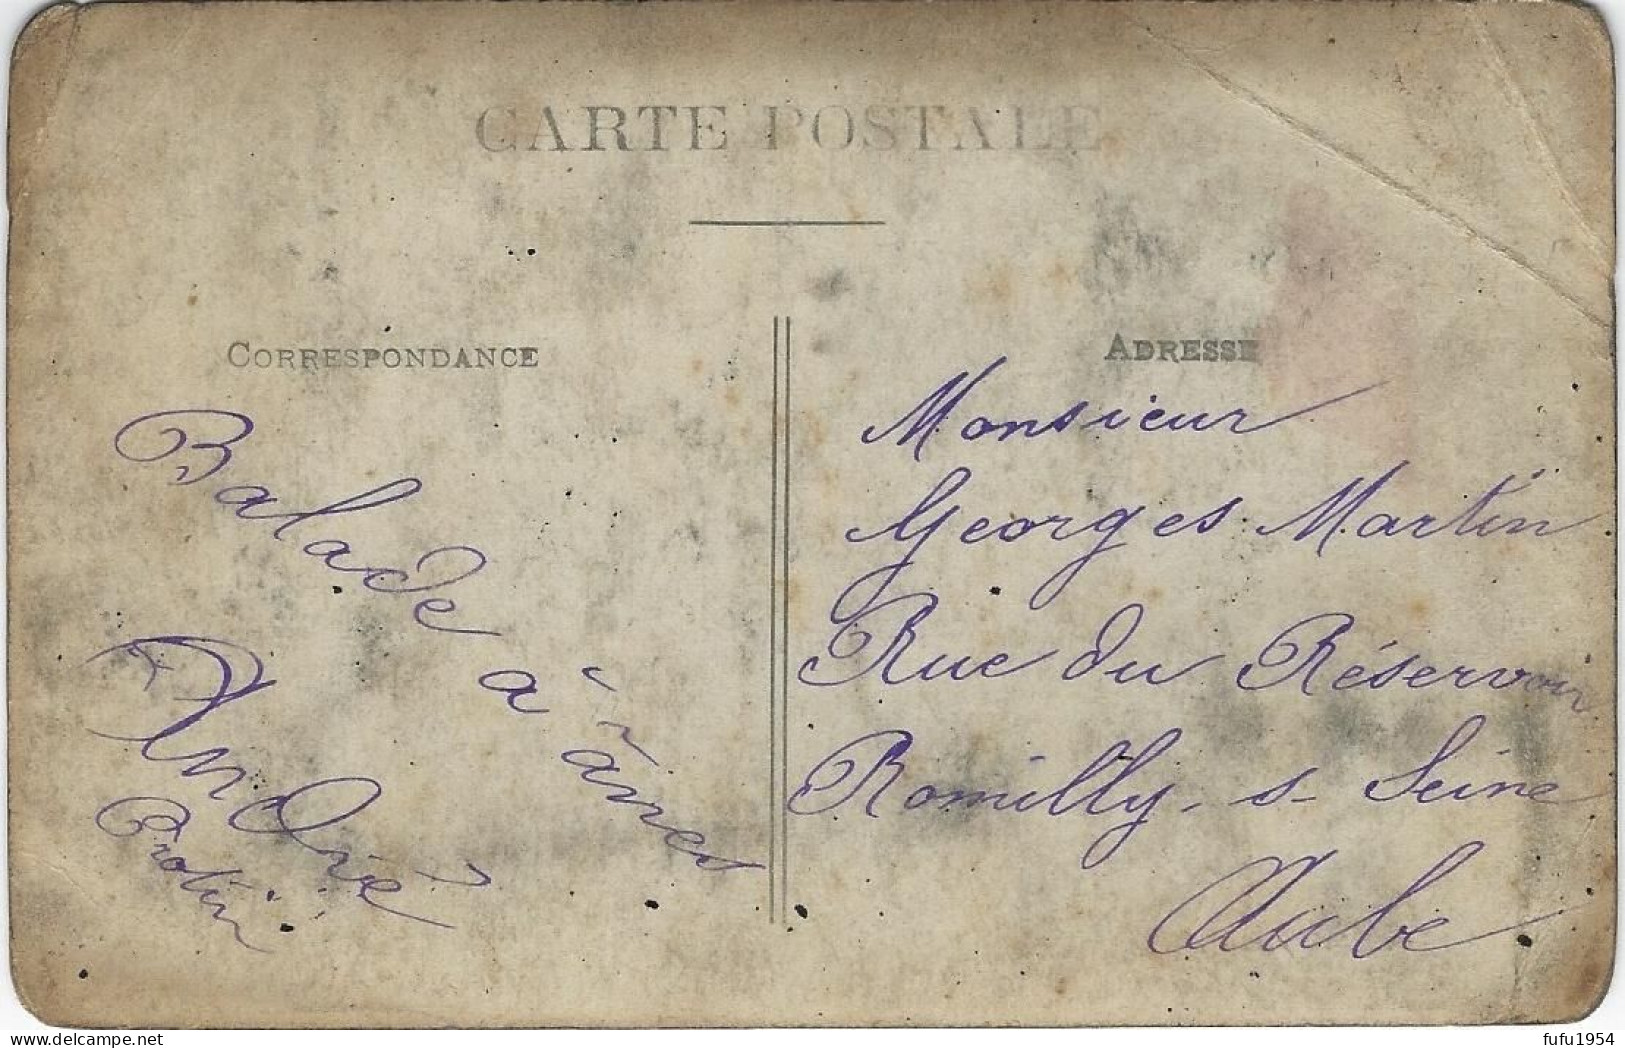 CARTE POSTALE
CORRESPONDANCE
Balade à ânes
André
Protin
ADRESSE
Monsieur
Georges Martin
Rue du Réservoir
Romilly-s-Seine
Aube
delcampe.net
fufu1954